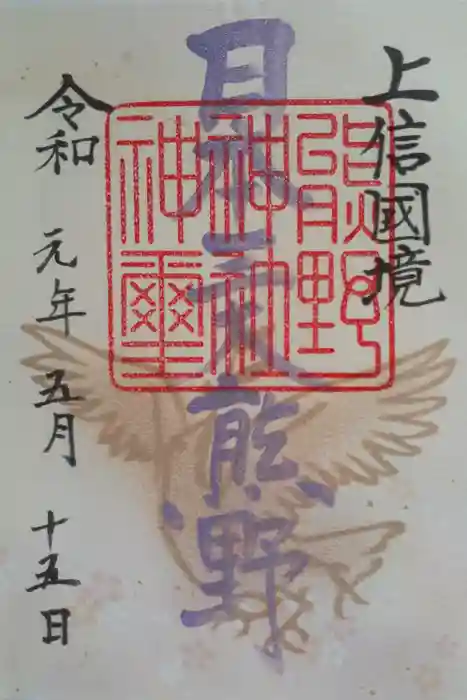 上信國境
日本三大熊野
熊野
神社
神璽
令和元年五月十五日